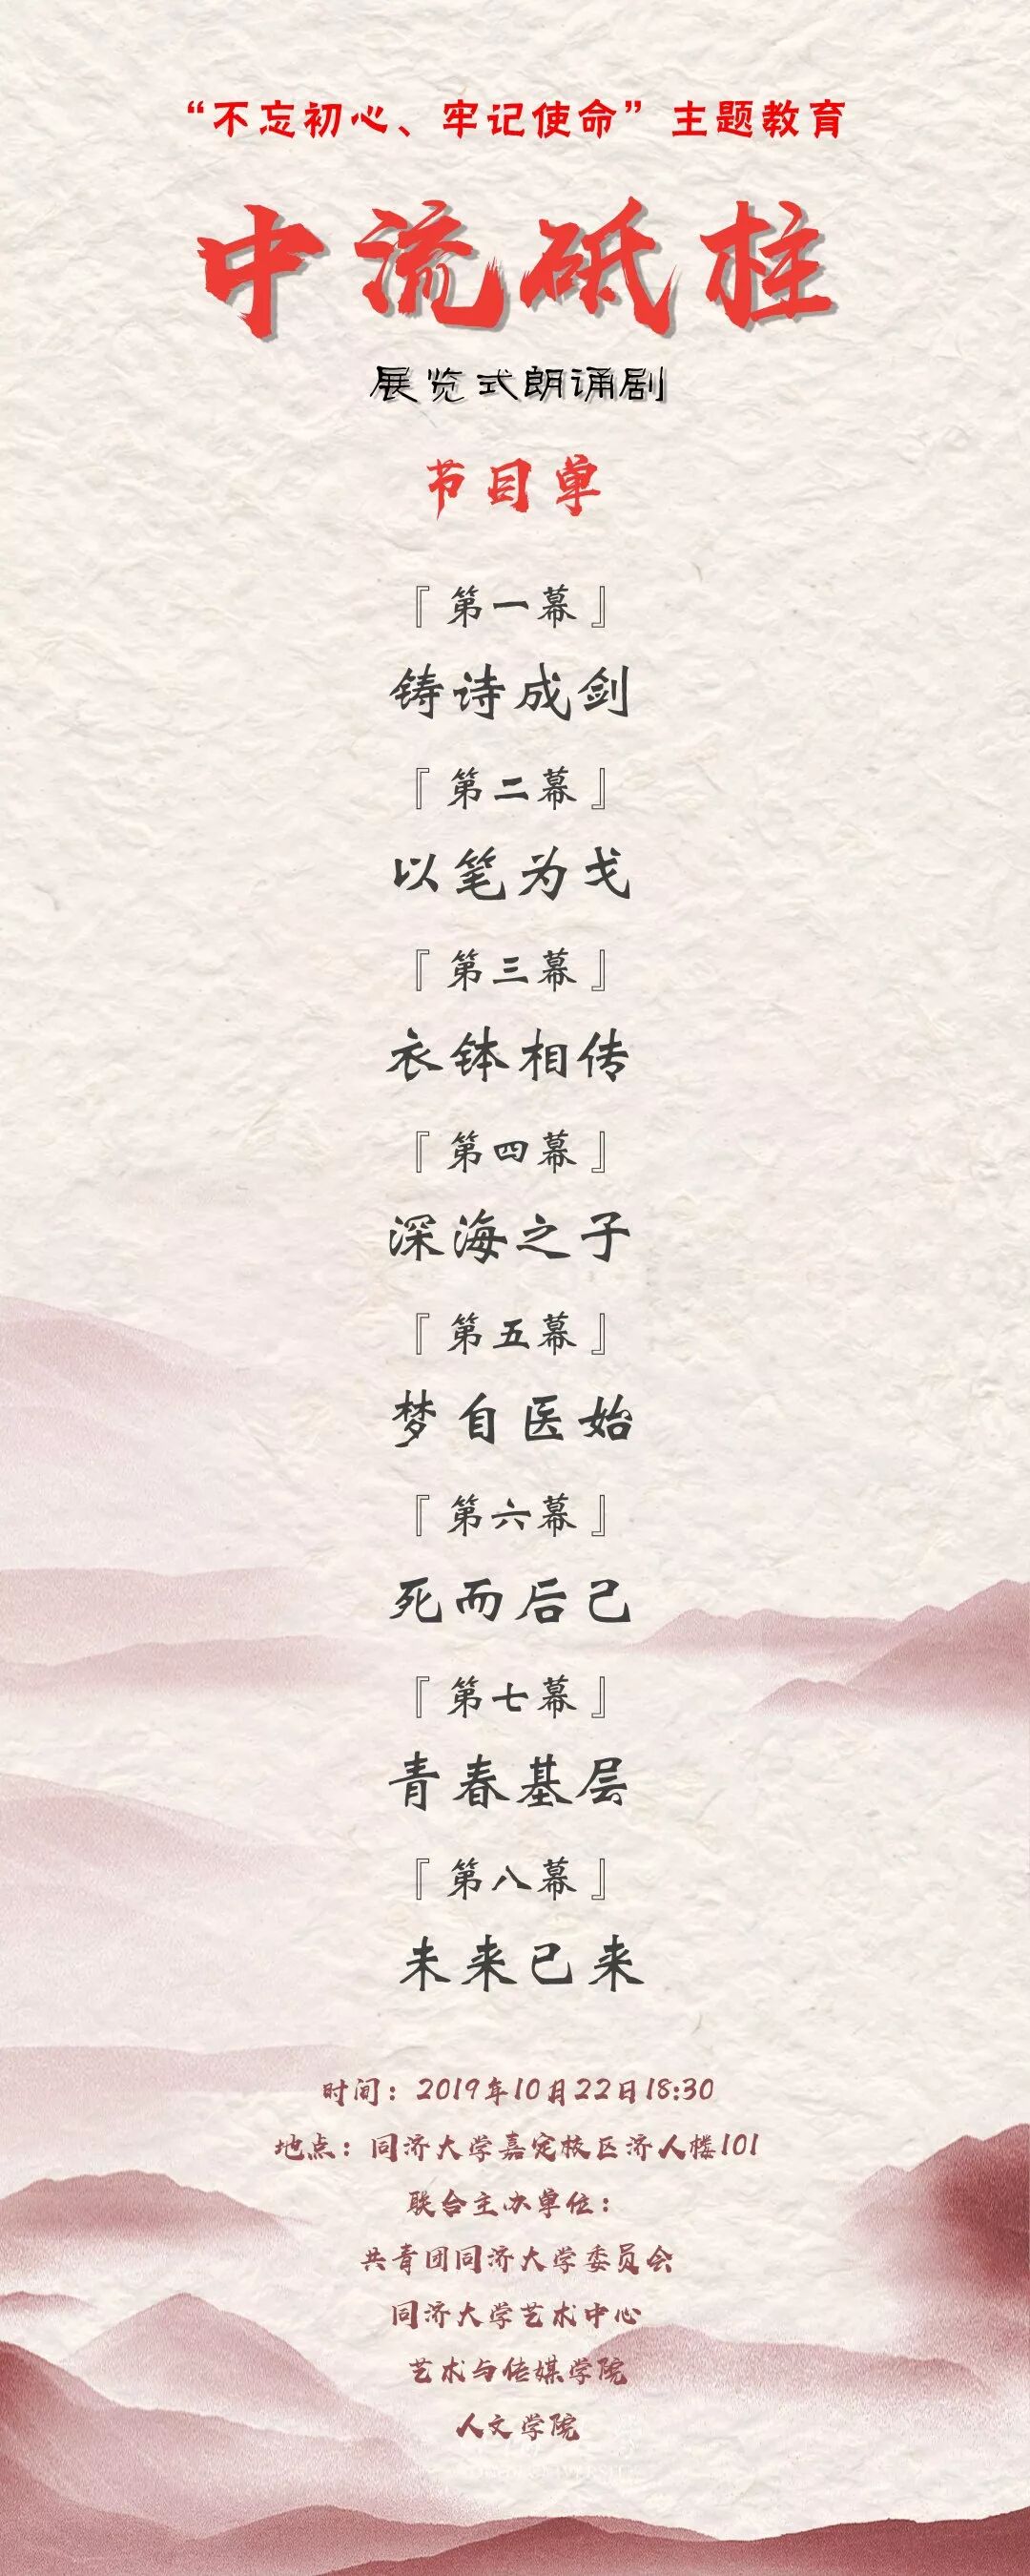 “不忘初心、牢记使命”主题教育
中流砥柱
展览式朗诵剧
节目单
『第一幕』
铸诗成剑
『第二幕』
以笔为戈
『第三幕』
衣钵相传
『第四幕』
深海之子
『第五幕』
梦自医始
『第六幕』
死而后己
『第七幕』
青春基层
『第八幕』
未来已来
时间：2019年10月22日18:30
地点：同济大学嘉定校区济人楼101
联合主办单位：
共青团同济大学委员会
同济大学艺术中心
艺术与传媒学院
人文学院